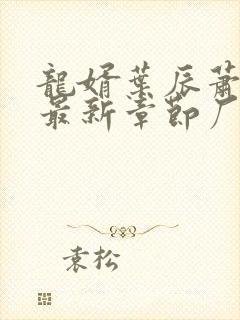 龍婿葉辰蕭
最新章節厂
袁松